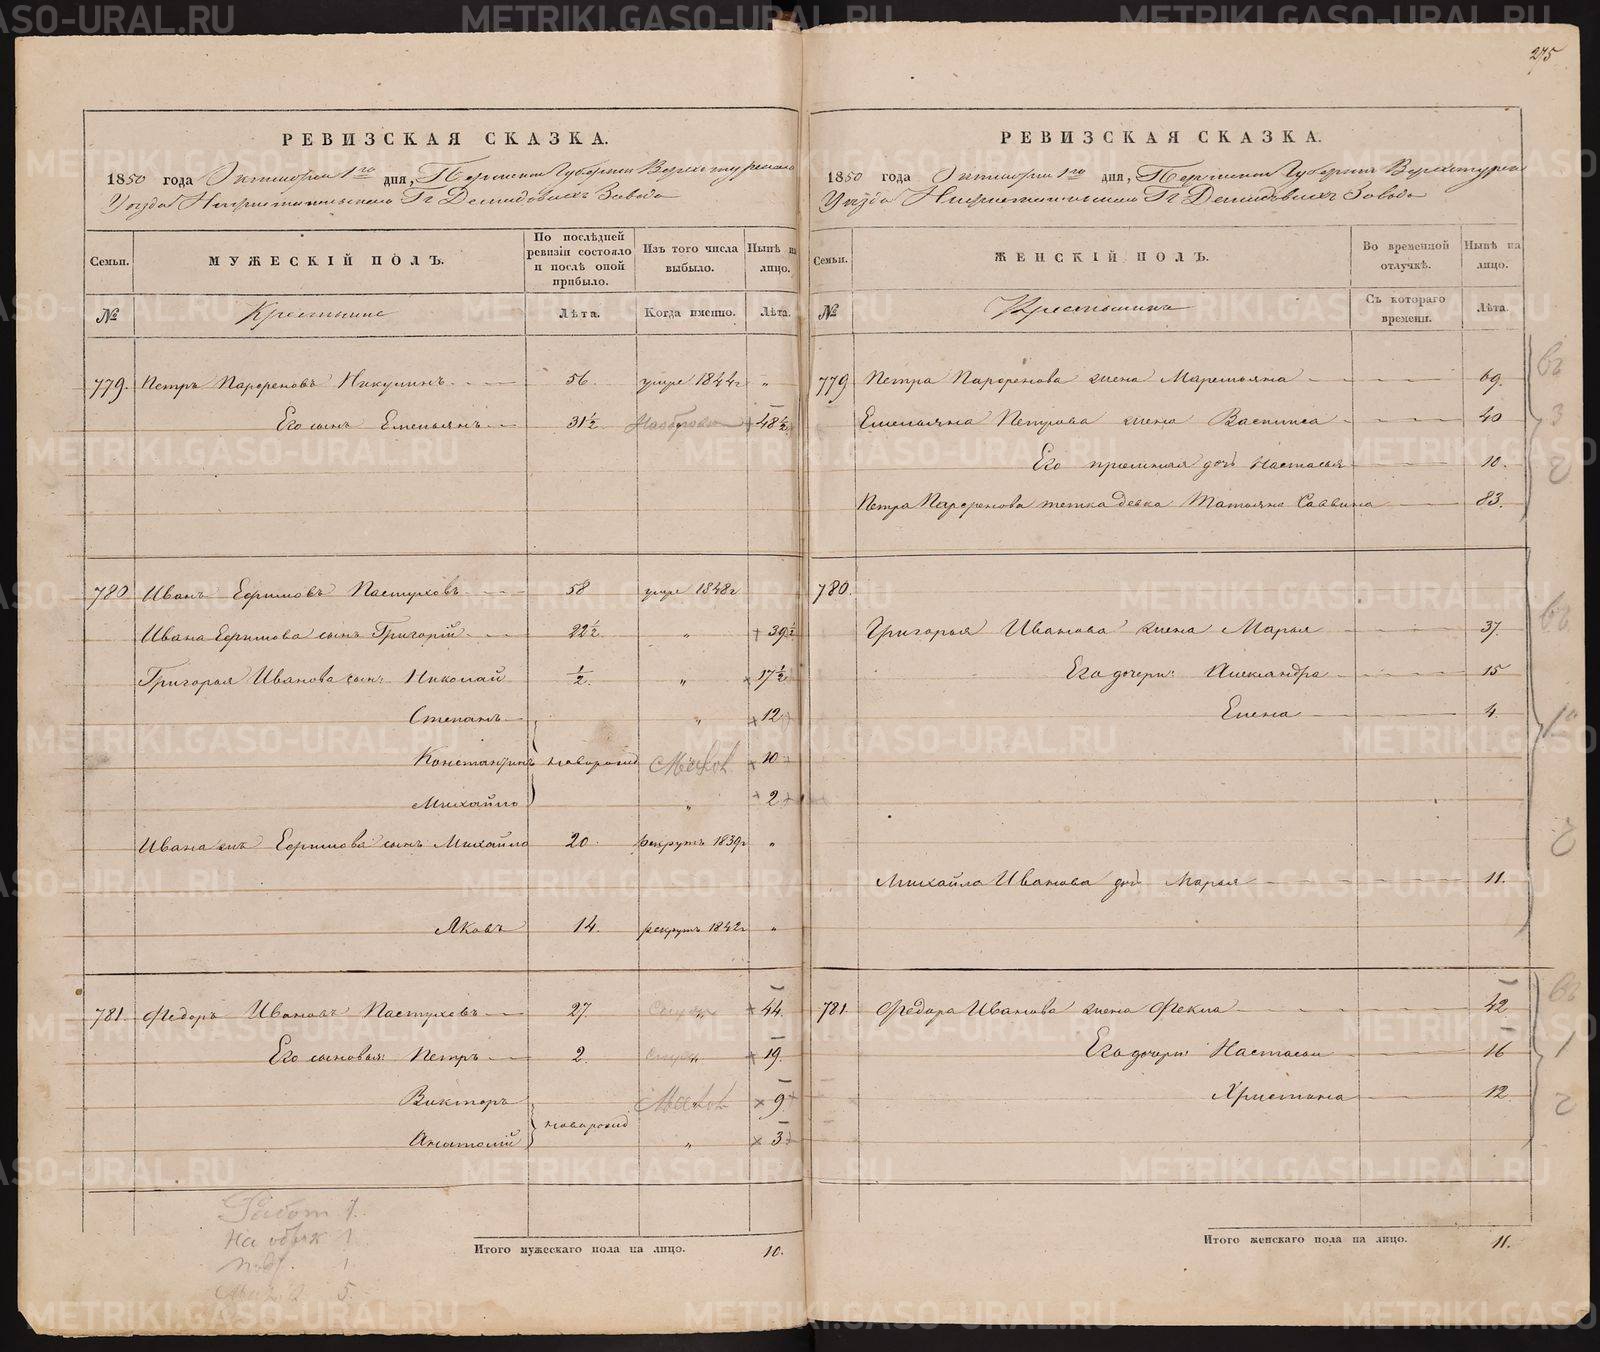 275
РЕВИЗСКАЯ СКАЗКА.
1850 года Октября 1го дня, Пермской Губернии Верхотурскаго
Уезда Нижнетагильскаго Гг Демидовых Завода
Семьи. МУЖЕСКІЙ ПОЛЪ. По послѣдней ревизіи состояло и послѣ оной прибыло. Изъ того числа выбыло. Нынѣ на лицо.
№ Крестьяне Лѣта. Когда именно. Лѣта.
779. Петръ Парфеновъ Никулинъ 56. умре 1844г "
Его сынъ Емельянъ 31½ На оброке 48½
780 Иванъ Ефимовъ Пастуховъ 58 умре 1848г
Ивана Ефимова сынъ Григорій 22½ " 39½
Григорья Иванова сын: Николай ½ " 17½
Степанъ " 12
Константинъ новорожд 10
Михайло " 2
Ивана Ефимова сынъ Михайло 20. рекрутъ 1839г "
Яковъ 14. рекрутъ 1842г "
781. Федоръ Ивановъ Пастуховъ 27. " 44.
Его сыновья: Петръ 2. " 19.
Викторъ новорожд 9
Анатолій " 3
Итого мужескаго пола на лицо. 10.
Работ 1.
На оброк 1
1
5.
РЕВИЗСКАЯ СКАЗКА.
1850 года Октября 1го дня, Пермской Губернии Верхотурскаго
Уезда Нижнетагильскаго Гг Демидовыхъ Завода
Семьи. ЖЕНСКІЙ ПОЛЪ. Во временной отлучкѣ. Нынѣ на лицо.
№ Крестьянки Съ котораго времени. Лѣта.
779 Петра Парфенова жена Маремьяна 69.
Емельяна Петрова жена Васлиса 40
Его приемная дочь Настасья 10.
Петра Парфенова тетка девка Татьяна Саввина 83.
780.
Григорья Иванова жена Марья 37.
Его дочери: Александра 15
Елена 4.
Михайло Иванова доч Марья 11.
781. Федора Иванова жена Фекла 42
Его дочери: Настасья 16
Христина 12
Итого женскаго пола на лицо. 11.
METRIKI.GASO-URAL.RU